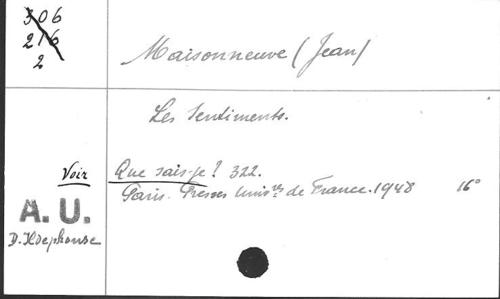 306
216
2
Maisonneuve (Jean)
Les Sentiments.
Voir
Que sais-je? 322.
Paris. Presses Univ.res de France. 1948 16°
A. U.
D. Ildephonse